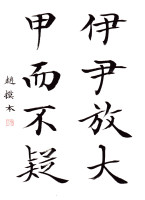 伊尹放大
甲而不疑
趙樸本